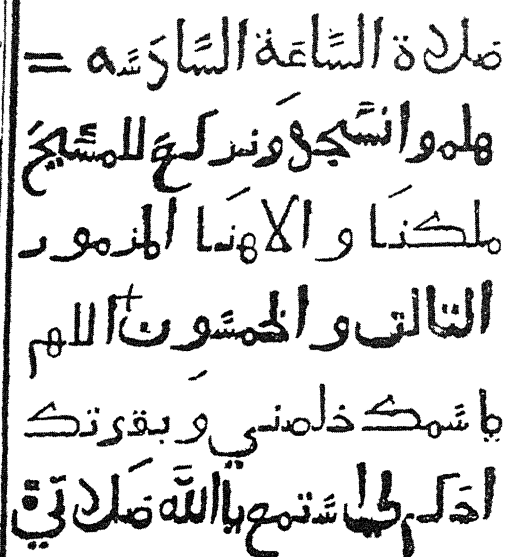 صلاة السّاعة السّادسّه =
هلم وانسّجد ونركع للمسّيح
ملكنا و الاهنا المزمور
الثالث و الخمسّون + اللهم
باسّمك خلصني و بقوتك
احكم لي استمع يا الله صلاتي